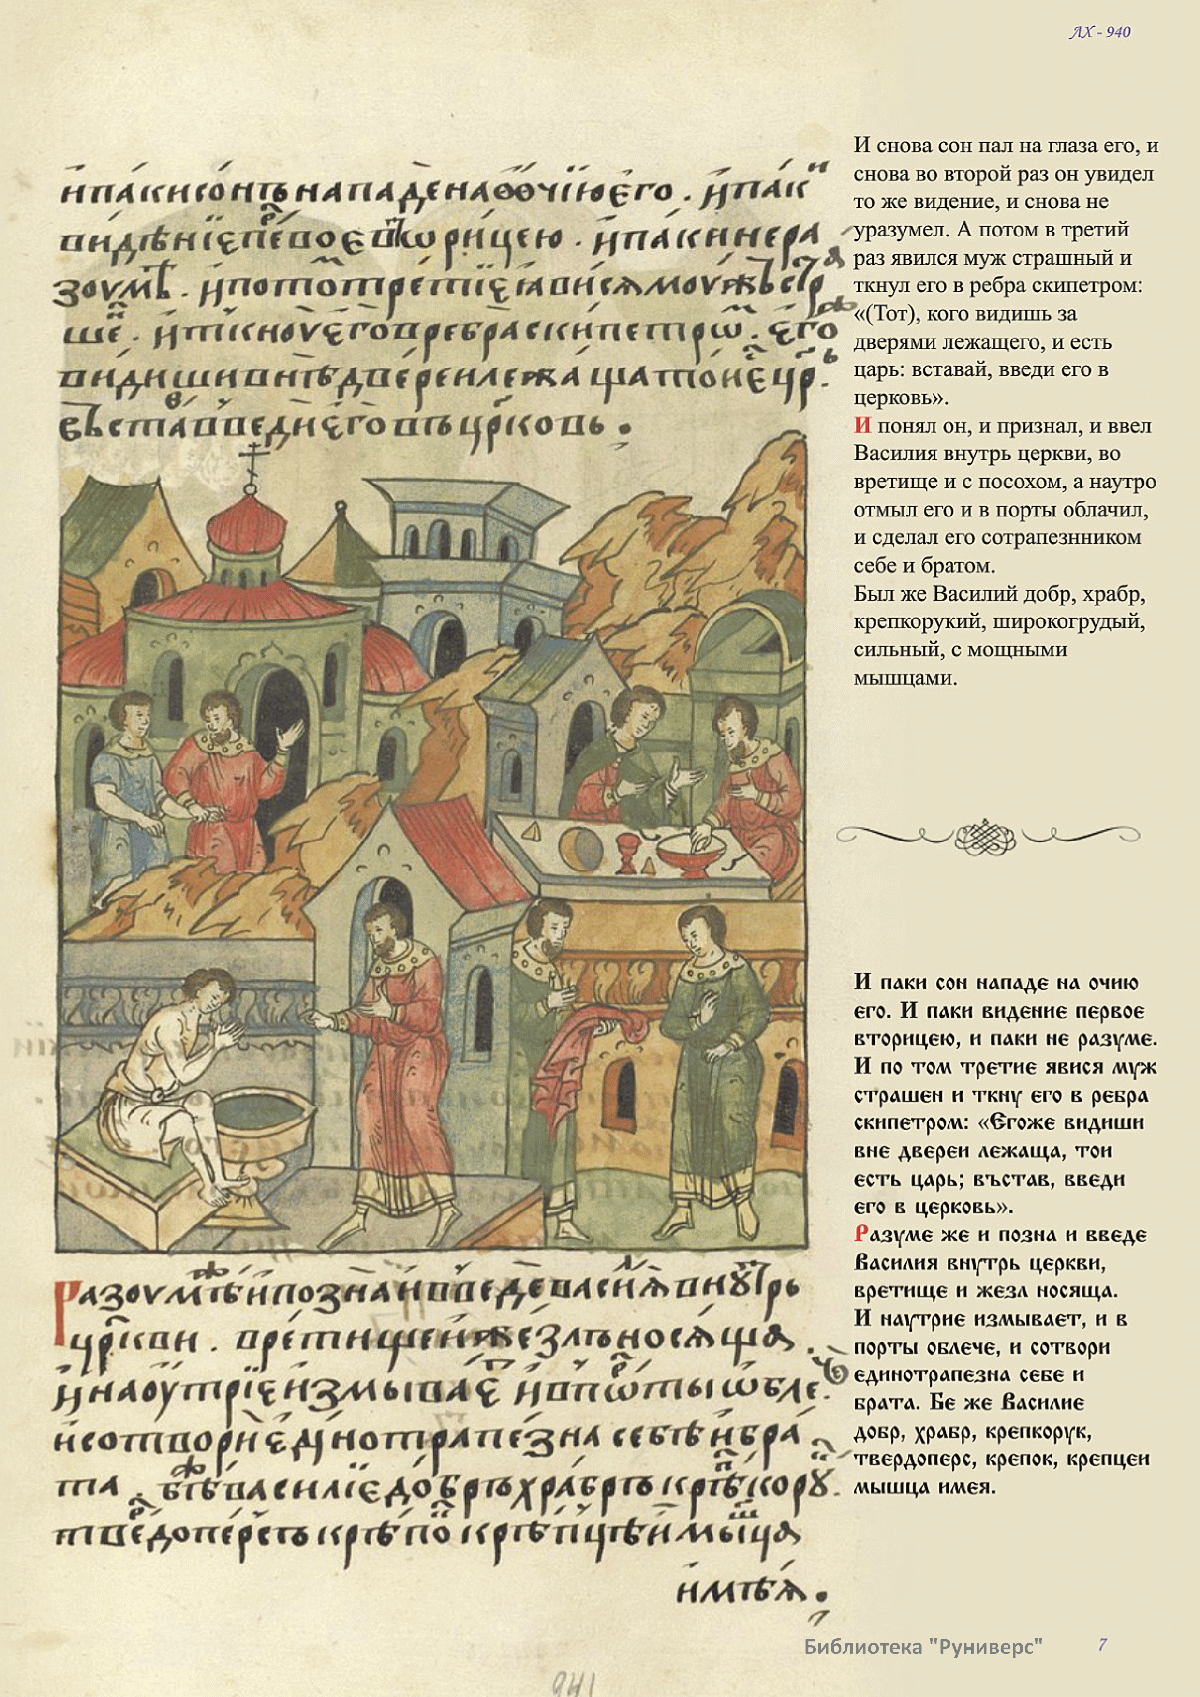 ЛХ - 940
И снова сон пал на глаза его, и
снова во второй раз он увидел
то же видение, и снова не
уразумел. А потом в третий
раз явился муж страшный и
ткнул его в ребра скипетром:
«(Тот), кого видишь за
дверями лежащего, и есть
царь: вставай, введи его в
церковь».
И понял он, и признал, и ввел
Василия внутрь церкви, во
вретище и с посохом, а наутро
отмыл его и в порты облачил,
и сделал его сотрапезнником
себе и братом.
Был же Василий добр, храбр,
крепкорукий, широкогрудый,
сильный, с мощными
мышцами.
И паки сон нападе на очию
его. И паки видение первое
вторицею, и паки не разуме.
И по том третие явися муж
страшен и ткну его в ребра
скипетром: «Егоже видиши
вне двереи лежаща, тои
есть царь; въстав, введи
его в церковь».
Разуме же и позна и введе
Василия внутрь церкви,
вретище и жезл носяща.
И наутрие измывает, и в
порты облече, и сотвори
единотрапезна себе и
брата. Бе же Василие
добр, храбр, крепкорук,
твердоперс, крепок, крепцеи
мышца имея.
и паки сонъ нападе на ѻчїю его . и пак
видѣнїе первое вторицею . и паки не ра
зоумѣ . и пото третїе ꙗвися моужъ стра
ше . и ткноу его в ребра скипетрѡ . его
види ши внѣ двереи лежаща то и е црь .
въстав введи его въ црковь .
Разоумѣ и позна и введе васия внутрь
цркви . вретище и жезлъ носяща .
и на оутрїе измывае и в порты ѡбле .
и сотвори единотрапезна себѣ и бра
та . бѣ василїе добръ храбръ крѣпкору .
твердоперстъ крѣпо крѣпцѣи мышца
имѣя .
941
Библиотека "Руниверс"
7